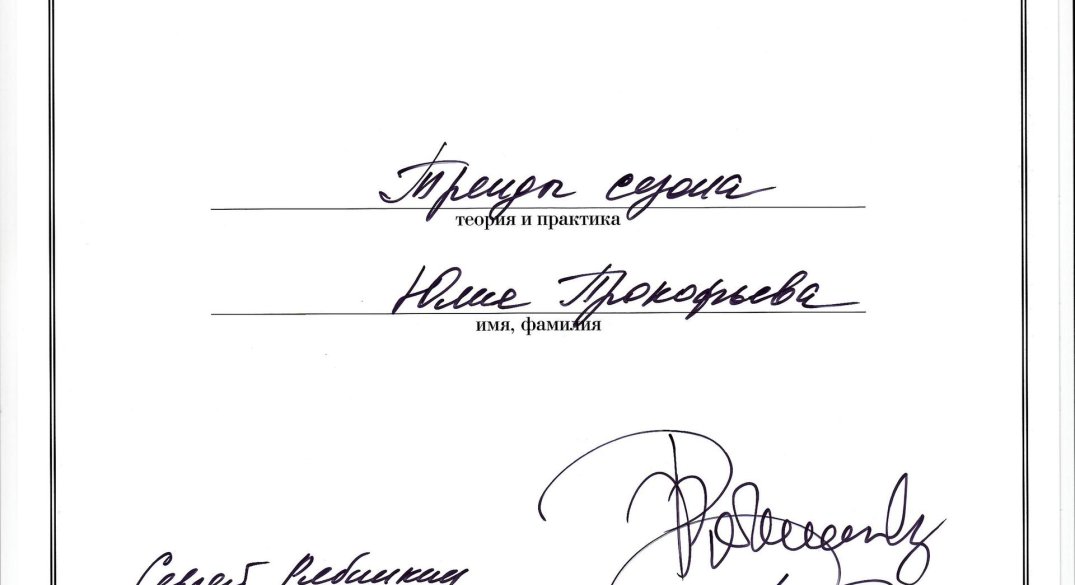 Тренды сезона
теория и практика
Юлие Прокофьева
имя, фамилия
Сергей Рябинкин